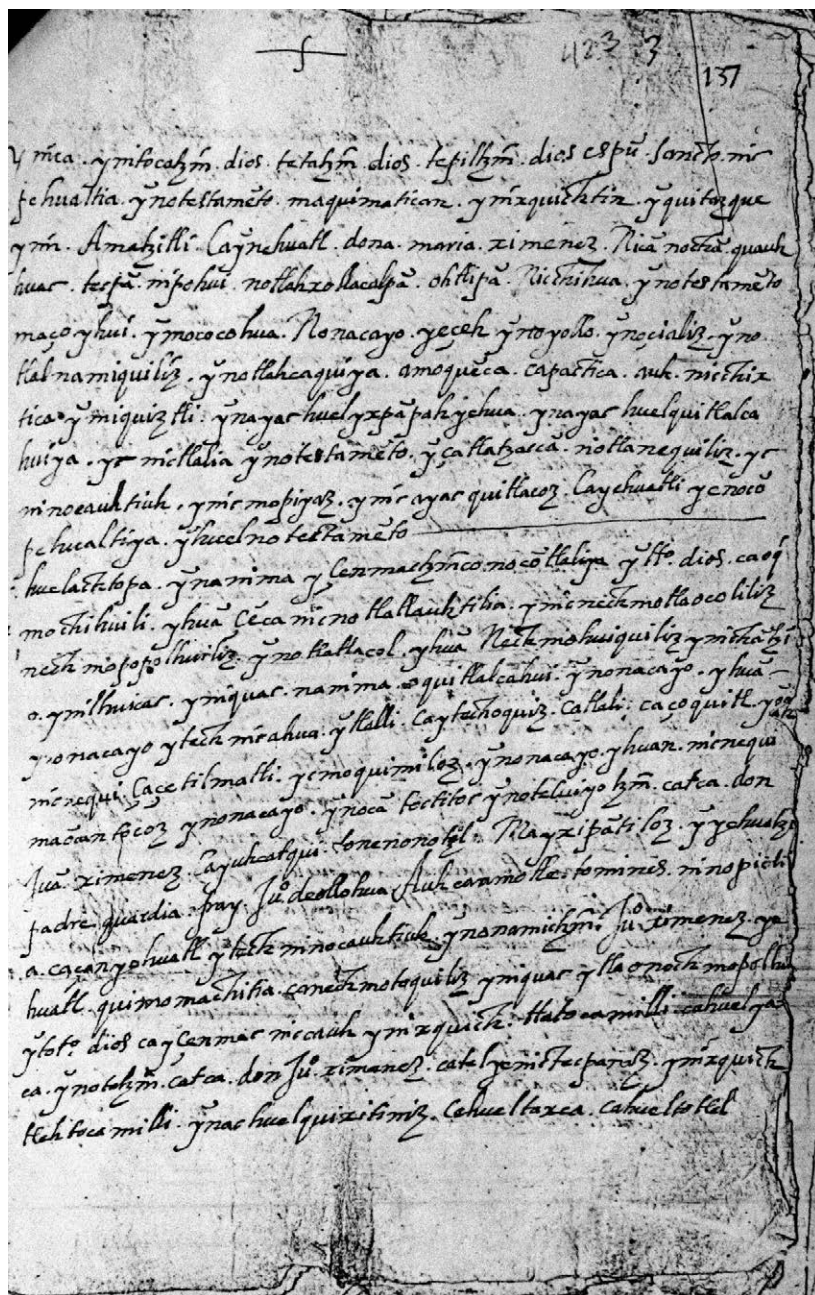 423 3
137
Y nica . yn itocatzin . dios . tetatzin . dios . tepiltzin . dios espū . sancto . nic
pehualtia . yn notestamēto . maquimatican . ynixquichtin . yquitazque
ynin . Amatzilli . Caynehuatl . dona . maria . ximenez . Nicā nochā . quauh
huac . tecpā . nipohui . notlahxollacalpā . ohtlipā . Nicchihua . ynotestamēto
maço yhui . ymococohua . Nonacayo . yeçeh ynoyollo . ynoçializ . yno
tlalnamiquiliz . ynotlahcaquiya . amoquēca . capactica . auh . nicchix
tica ymiquiztli . ynayac huelyxpāpahyehua . ynayac huelquitlalca
huiya . yc nictlalia ynotestamēto . yçatlatzaccā . notlanequiliz . yc
ninocauhtiuh . ynic mopiyaz . ynic ayac quitlacoz . Cayehuatli ycnocō
pehualtiya . yhuelnotestamēto
huelachtopa . ynanima yçenmactzinco nocōtlaliya ytto dios . caoq
mochihuili . yhuā çēca nicnotlatlauhtilia . ynicnechmotlaocoliliz
nechmopopolhuiliz . ynotlatlacol . yhuā Nechmohuiquiliz ynichātzī
o . ynilhuicac . yniquac . nanima . oquitlalcahui . ynonacayo . yhuā
ynonacayo ytech nicahua . ytlalli . Caytechoquiz . Catlali . caçoquitl . yhuā
nicnequi . Cacetilmatli . ycmoquimiloz . ynonacayo . yhuan . nicnequi
maōcan tocoz ynonacayo . ynocā toctitoc ynotelviyotzin . catca . don
Juā ximenez . Cayuhcatqui . Mayxipātiloz . yyehuatzi
padre guardia . fray . Juo deollohua . Auh caxamotle . tomines . ninopieli
a . caçanyohuatl ytech ninocauhtiuh . ynonamictzin Juo ximenez . ye
huatl . quimomachitia . canechmotoquiliz yniquac ytla onechmopolhui
ytoto dios cayçenmac niccauh ynixquich . tlatocamilli . cahuelyax
ca . ynotatzin catca . don Juo ximenez . ynixquich
tlahtocamilli . ynac huelquixitiniz . Cehueltaxca . cahueltotlal